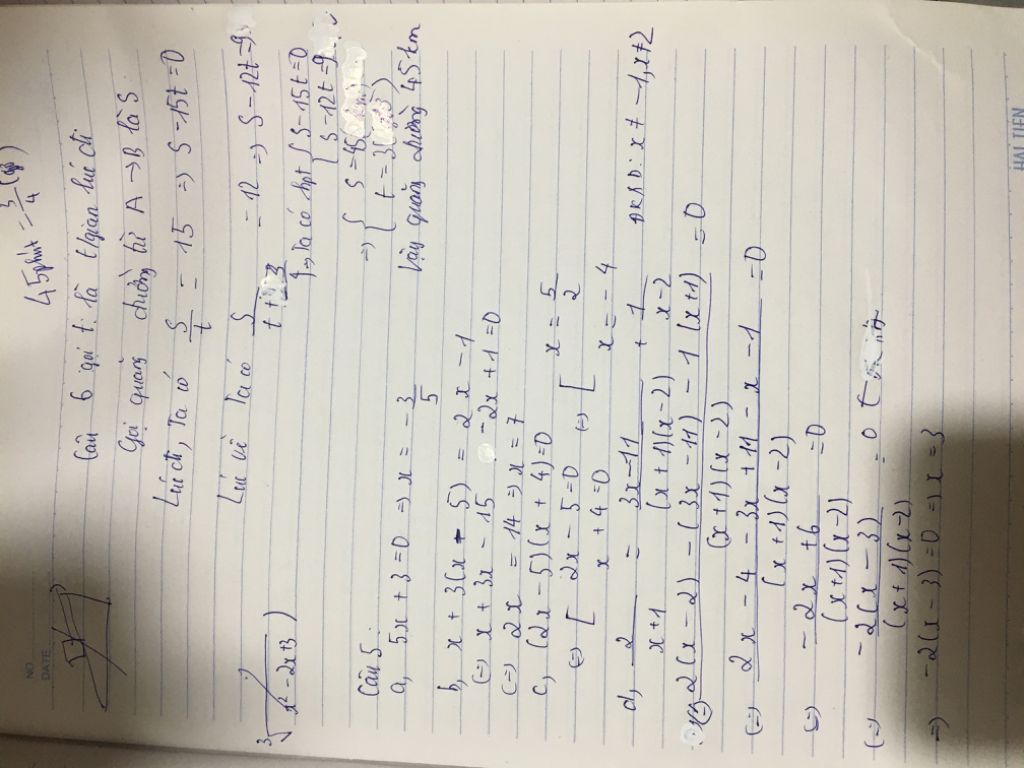 NO
DATE
45 phút = 3/4 (
Câu 6 gọi t là t/gian lúc đi
Gọi quãng đường từ A → B là S
Lúc đi, Ta có S/t = 15 => S - 15t = 0
Lúc về Ta có S/(t + 3/4) = 12 => S - 12t = 9
=> Ta có hpt { S - 15t = 0
{ S - 12t = 9
=> { S = 45
{ t = 3
Vậy quãng đường 45 km
∛(x² - 2x + 3)
Câu 5:
a, 5x + 3 = 0 => x = -3/5
b, x + 3(x - 5) = 2x - 1
(=) x + 3x - 15 - 2x + 1 = 0
(=) 2x = 14 => x = 7
c, (2x - 5)(x + 4) = 0
(=) [ 2x - 5 = 0 (=) [ x = 5/2
x + 4 = 0 x = -4
d, 2/(x+1) = (3x-11)/((x+1)(x-2)) + 1/(x-2) ĐKXĐ: x ≠ -1, x ≠ 2
(=) (2(x-2) - (3x-11) - 1(x+1))/((x+1)(x-2)) = 0
(=) (2x - 4 - 3x + 11 - x - 1)/((x+1)(x-2)) = 0
(=) (-2x + 6)/((x+1)(x-2)) = 0
(=) (-2(x-3))/((x+1)(x-2)) = 0
=> -2(x-3) = 0 => x = 3
HẢI TIẾN